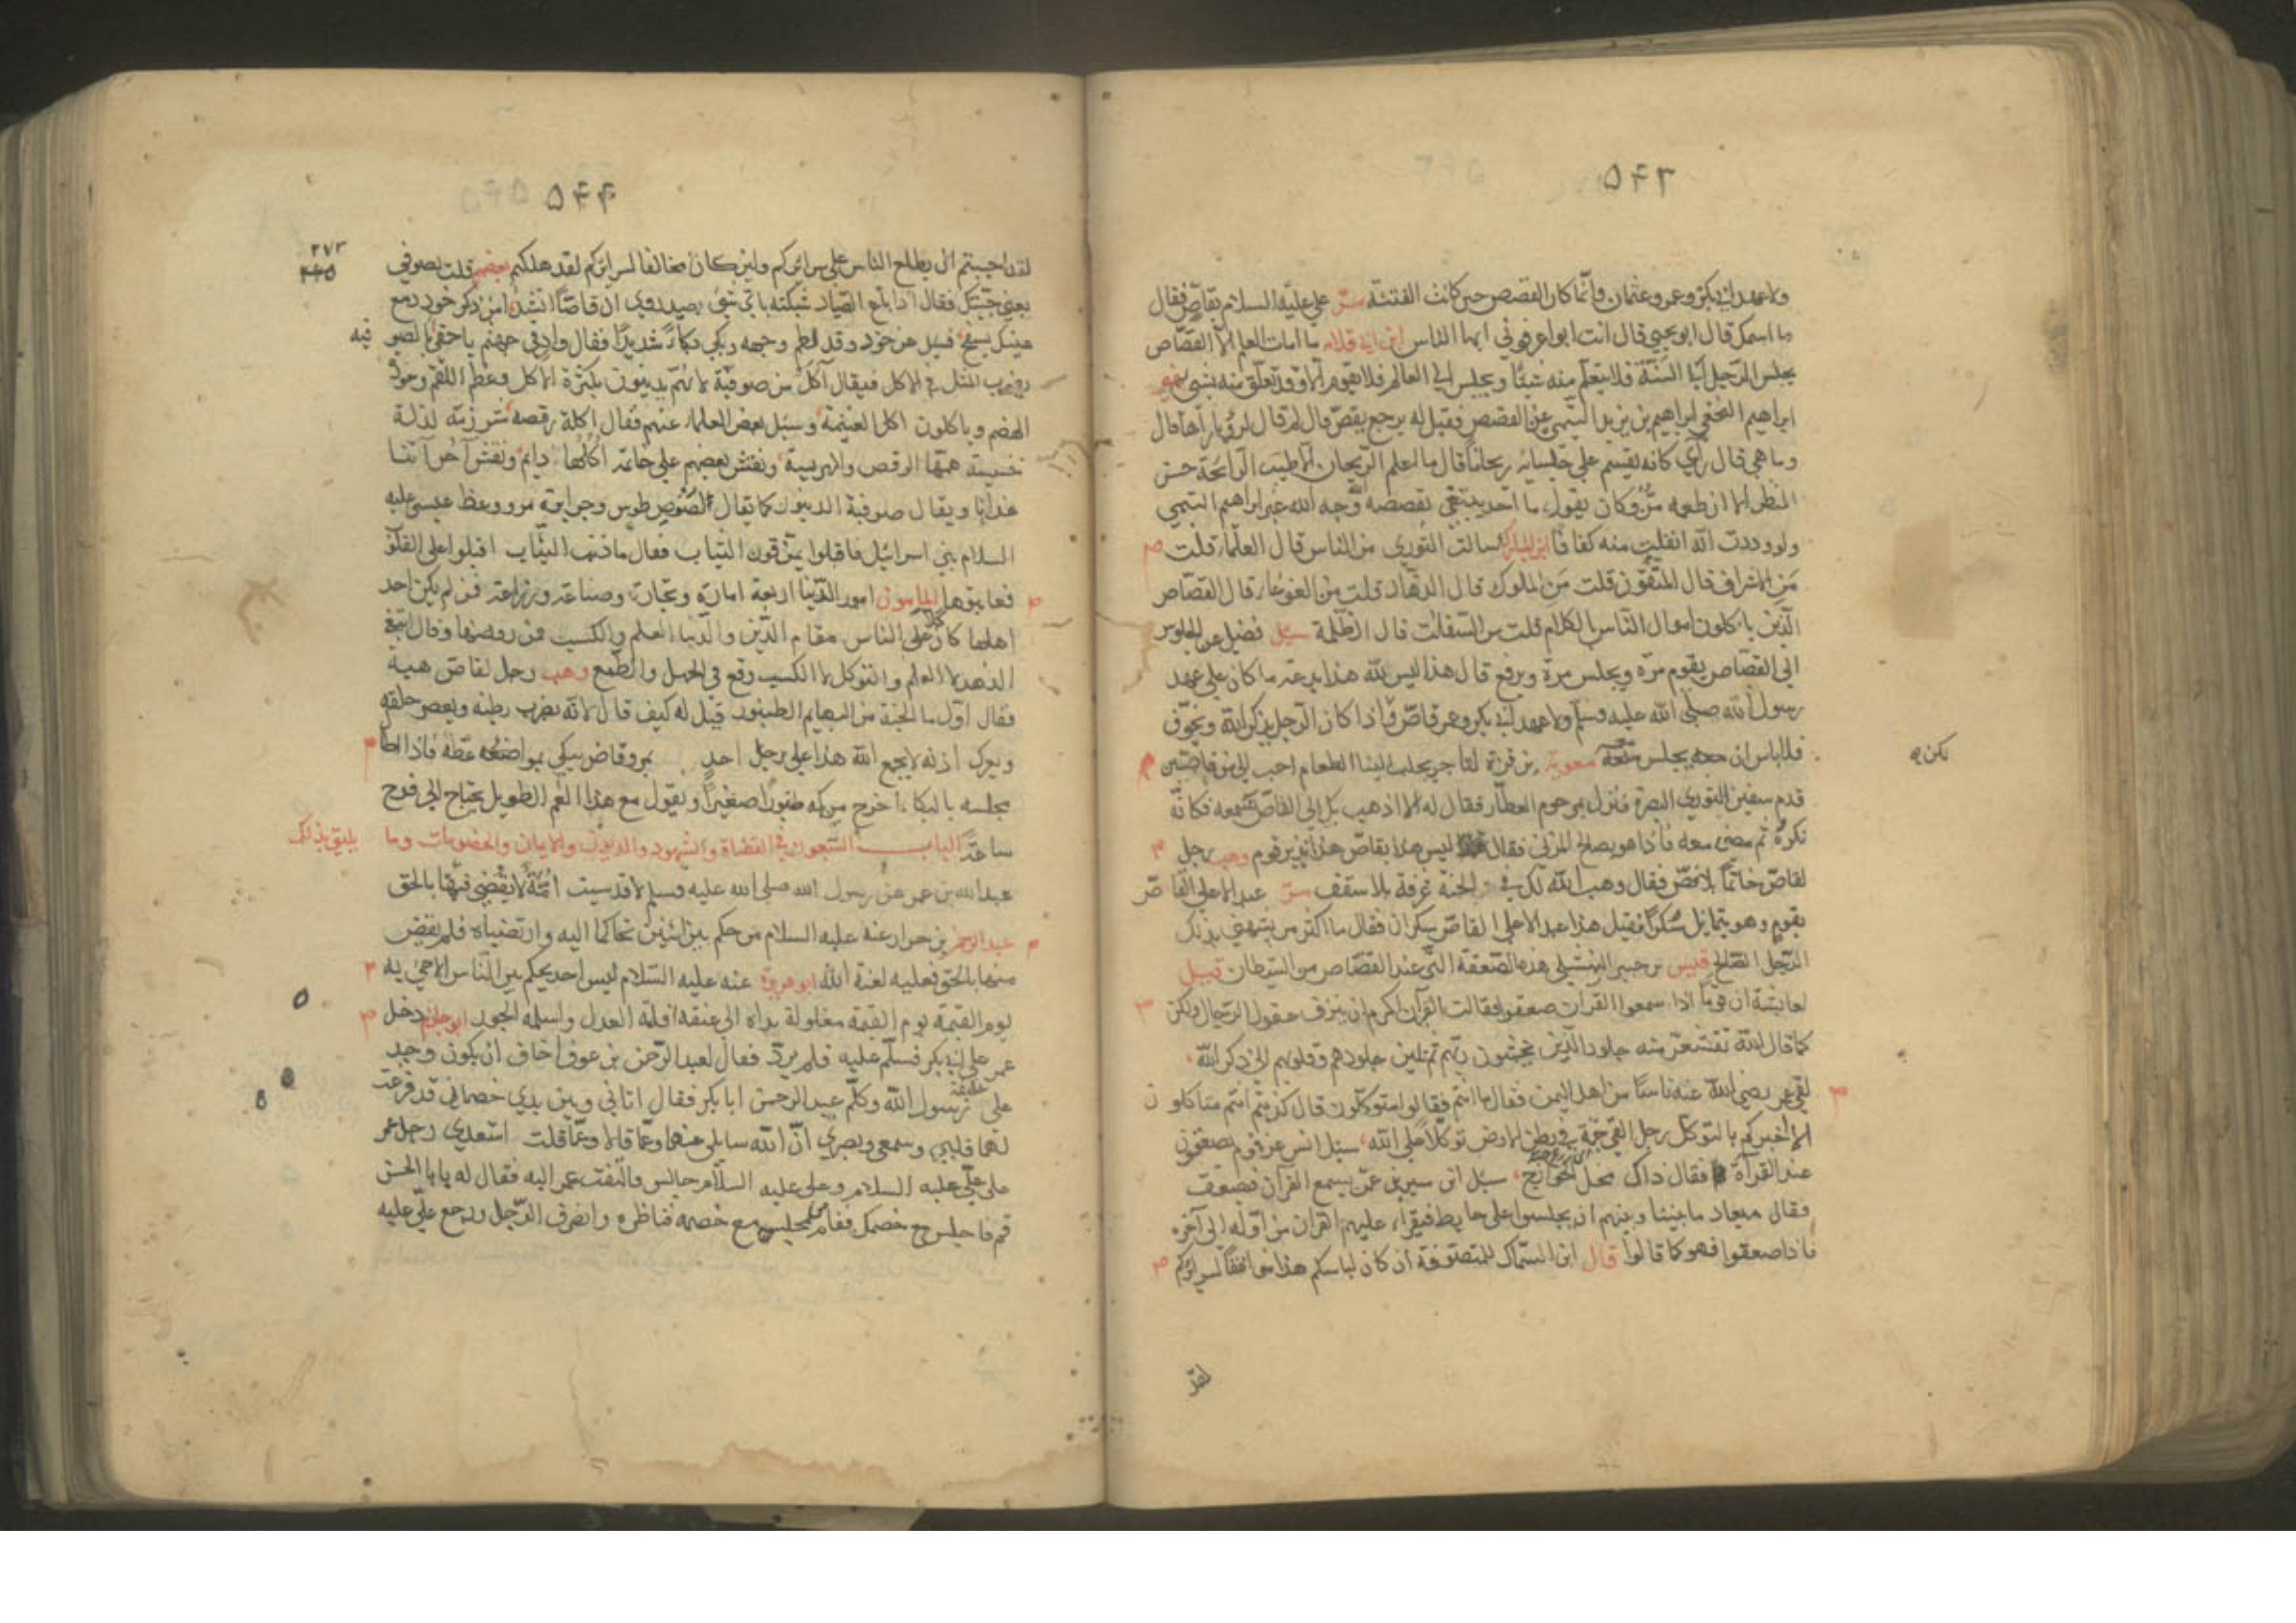 ٥٤٣
ولا عهد ابي بكر وعمر وعثمان وانما كان القصص حين كانت الفتنة مرّ علي عليه السلام بقاصّ فقال
ما اسمك قال ابو يحيى قال انت ابو اعرفوني ايها الناس ابن ابي قلابه ما امات العلم الا القصّاص
يجلس الرّجل الى السّنة فلا يتعلّم منه شيئا ويجلس الى العالم فلا يقوم الا وقد تعلّق منه بشئ
ابراهيم النخعي ابراهيم بن يزيد التيمي عن القصص فقيل له يرجع يقصّ قال لم قال لرؤيا رآها قال
وما هي قال رأى كانه يقسم على جلسائه ريحانا قال ما اعلم الريحان الا طيب الرائحة حسن
المنظر الا ان طعمه مرّ وكان يقول ما احد يبتغي بقصصه وجه الله غير ابراهيم التيمي
ولوددت انه انفلت منه كفافا ابن المبارك سالت الثوري من الناس قال العلماء قلت
مَن الاشراف قال المتقون قلت مَن الملوك قال الزهاد قلت من الغوغاء قال القصّاص
الذين ياكلون اموال الناس بالكلام قلت من السفلة قال الظلمة سئل فضيل عن الجلوس
الى القصّاص يقوم مرّة ويجلس مرّة ويرفع قال هذا ليس لله هذا بدعة ما كان على عهد
رسول الله صلى الله عليه وسلم ولا عهد ابي بكر وعمر قاصّ فاذا كان الرجل يذكر الله ويخوّف
فلا باس ان يجلس معه معوية بن قرة لتاجر يجلب الينا الطعام احب الي من قاصّين
لكن
قدم سفين الثوري البصرة فنزل بمرحوم العطار فقال له الا اذهب بك الى القاصّ تسمعه فكانّه
نكره ثم مضى معه فاذا هو بصالح المرّي فقال ليس هذا بقاصّ هذا نذير قوم وهب رجل
لقاصّ خاتما بلا فصّ فقال وهب الله لك في الجنة غرفة بلا سقف مرّ عبد الاعلى القاصّ
بقوم وهو يتمايل سُكرا فقيل هذا عبد الاعلى القاصّ سكران فقال ما اكثر من يشبهني بذلك
الرّجل الصّالح قيس بن جبير النهشلي هذه الصّعقة التي عند القصّاص من الشيطان قيل
لعائشة ان قوما اذا سمعوا القران صعقوا فقالت القرآن اكرم ان ينزف عقول الرّجال ولكن
كما قال الله تقشعرّ منه جلود الذين يخشون ربّهم ثم تلين جلودهم وقلوبهم الى ذكر الله
لقي عمر رضي الله عنه ناسًا من اهل اليمن فقال ما انتم فقالوا متوكلون قال كذبتم انتم متاكلون
الا اخبركم بالتوكل رجل القى حبّة في بطن الارض توكّلا على الله سئل انس عن قوم يصعقون
عند القرآة فقال ذاك فعل الخوارج سئل ابن سيرين عمّن يسمع القرآن فصعق
فقال ميعاد ما بيننا وبينهم ان يجلسوا على حايط فيقراء عليهم القران من اوّله الى آخره
فاذا صعقوا فهو كما قالوا قال ابن السّماك للمتصوّفة ان كان لباسكم هذا موافقا لسرائركم
لقد
٥٤٤
٢٧٣
لقد احببتم ان يطلع الناس على سرائركم ولئن كان مخالفا لسرائركم لقد هلكتم بعضهم قلت لصوفي
بعني جبّتك فقال اذا باع الصّياد شبكته باي شئ يصيد روي ان قاصّا انشد امن ذكر خود دمع
عينك يسفح فسئل عن خود وقد لطم وجهه وبكى بكاء شديدا فقال واد في جهنم يا حمقى الصّوفيه
ويضرب المثل في الاكل فيقال آكل من صوفية لانّهم يدينون بكثرة الاكل وعظم اللقم وجودة
الهضم وياكلون اكل الغنيمة وسئل بعض العلماء عنهم فقال اكلة رقصه شرذمة لذلة
خسيسة همتها الرقص والهريسة ونقش بعضهم على خاتمه اكلها دائم ونقش آخر آتنا
غداءنا ويقال صوفية الدينور كما يقال لصوص طوس وعظ عيسى عليه
السلام بني اسرائيل فاقبلوا يمزقون الثياب فقال ما ذنب الثياب اقبلوا على القلوب
فعاتبوها المامون امور الدّنيا اربعة امارة وتجارة وصناعة وزراعة فمن لم يكن احد
اهلها كان كلا على الناس مقام الدّين والدنيا العلم والكسب فمن رفضهما وقال ابتغي
الزهد لا العلم والتوكل لا الكسب وقع في الجهل والطمع وهب رجل لقاصّ هبة
فقال اوّل ما الجنة من البهائم الطنبور قيل له كيف قال لانّه يضرب بطنه ويعصر حلقه
ويعرك اذنه لا يجمع الله هذا على رجل احد بمرو قاص يبكي بمواعظه فاذا طال
مجلسه بالبكاء اخرج من كمه طنبورا صغيرا ويقول مع هذا الغم الطويل يحتاج الى فرح
ساعة الباب السّبعون في القضاة والشهود والديون والايمان والخصومات وما يليق بذلك
عبد الله بن عمر عن رسول الله صلى الله عليه وسلم لا قدست امّة لا يقضى فيها بالحق
عبد الرحمن بن جراد عنه عليه السلام من حكم بين اثنين تحاكما اليه وارتضياه فلم يقض
بينهما بالحق فعليه لعنة الله ابو هريرة عنه عليه السّلام ليس احد يحكم بين النّاس الا جئ به
يوم القيمة مغلولة يداه الى عنقه افكه العدل واسلمه الجور ابو حازم دخل
عمر على ابي بكر فسلّم عليه فلم يردّ فقال لعبد الرّحمن بن عوف اخاف ان يكون وجد
على خليفة رسول الله وكلّم عبد الرحمن ابا بكر فقال اتاني وبين يدي خصمان قد فرغت
لهما قلبي وسمعي وبصري انّ الله سائلي عنهما وعمّا قالا وعمّا قلت استعدى رجل عمر
على عليّ عليه السلام وعلي عليه السلام جالس فالتفت عمر اليه فقال له يا با الحسن
قم فاجلس مع خصمك فقام فجلس مع خصمه فتناظرا وانصرف الرّجل ورجع عليّ عليه